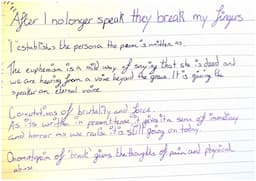 "After I no longer speak they break my fingers
'I' establishes the persona the poem is written as.
The euphemism is a mild way of saying that she is dead and
we are hearing from a voice beyond the grave. It is giving the
speaker an eternal voice.
Connotations of brutality and force.
As its written in present tense it giving its a sense of immediacy
and horror as we realise it is still going on today.
Onomatopoeia of 'break' gives the thoughts of pain and physical
abuse